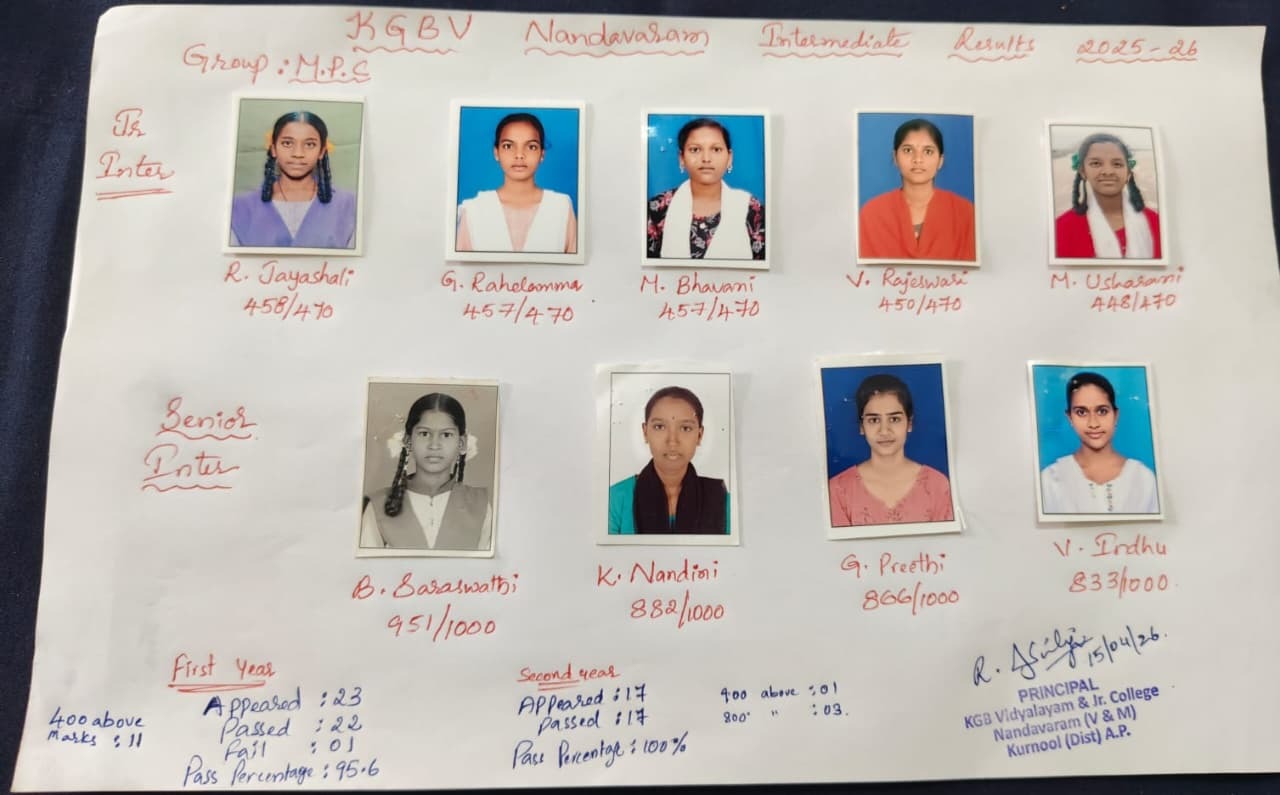 KGBV Nandavaram Intermediate Results 2025-26
Group : M.P.C
Jr
Inter
R. Jayashali
458/470
G. Rahelamma
457/470
M. Bhavani
457/470
V. Rajeswari
450/470
M. Usharani
448/470
Senior
Inter
B. Saraswathi
951/1000
K. Nandini
882/1000
G. Preethi
866/1000
V. Indhu
833/1000
First Year
Appeared : 23
Passed : 22
Fail : 01
Pass Percentage : 95.6
400 above
Marks : 11
Second year
Appeared : 17
Passed : 17
Pass Percentage : 100%
900 above : 01
800 " : 03.
15/04/26.
PRINCIPAL
KGB Vidyalayam & Jr. College
Nandavaram (V & M)
Kurnool (Dist) A.P.